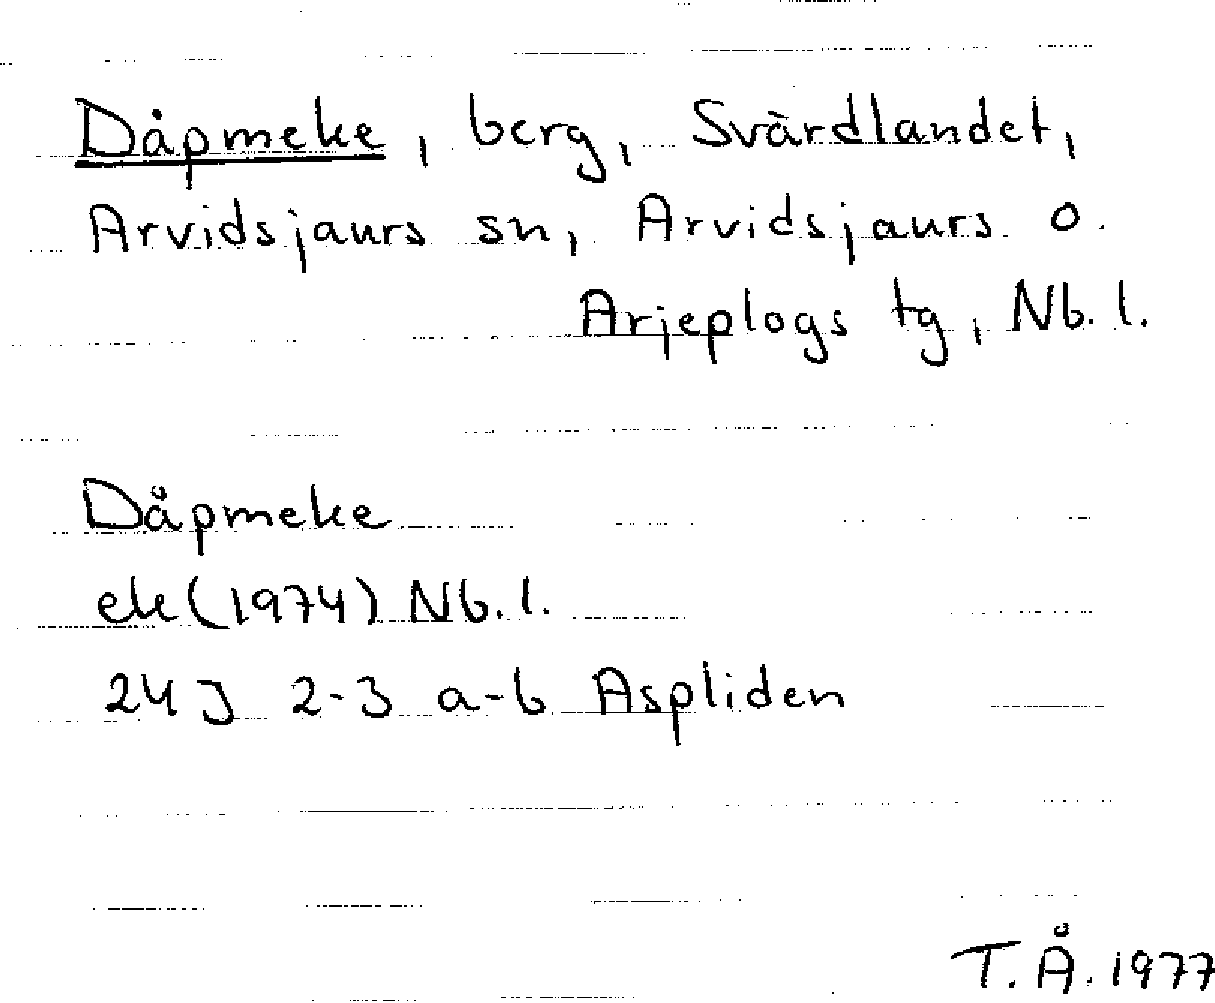 Dåpmeke, berg, Svärdlandet,
Arvidsjaurs sn, Arvidsjaurs o.
Arjeplogs tg, Nb. l.
Dåpmeke
ek (1974) Nb. l.
24 J 2-3 a-b Aspliden
T. Å. 1977